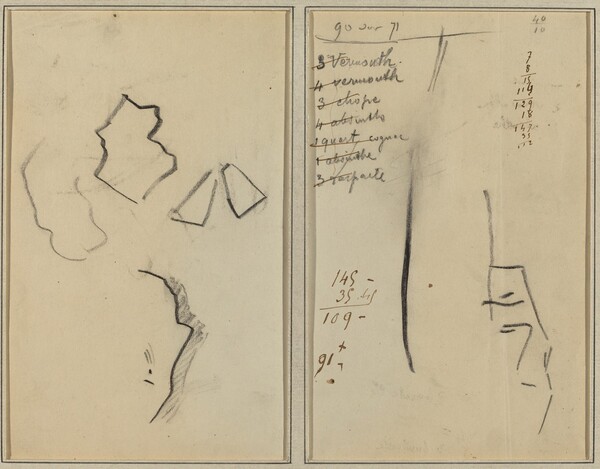 40
10
90 sur 71
3 Vermouth.
4 vermouth
3 chope
4 absinthe
1 quart cognac
1 absinthe
3
7
8
15
114
129
18
147
35
145 -
35
109 -
91 +